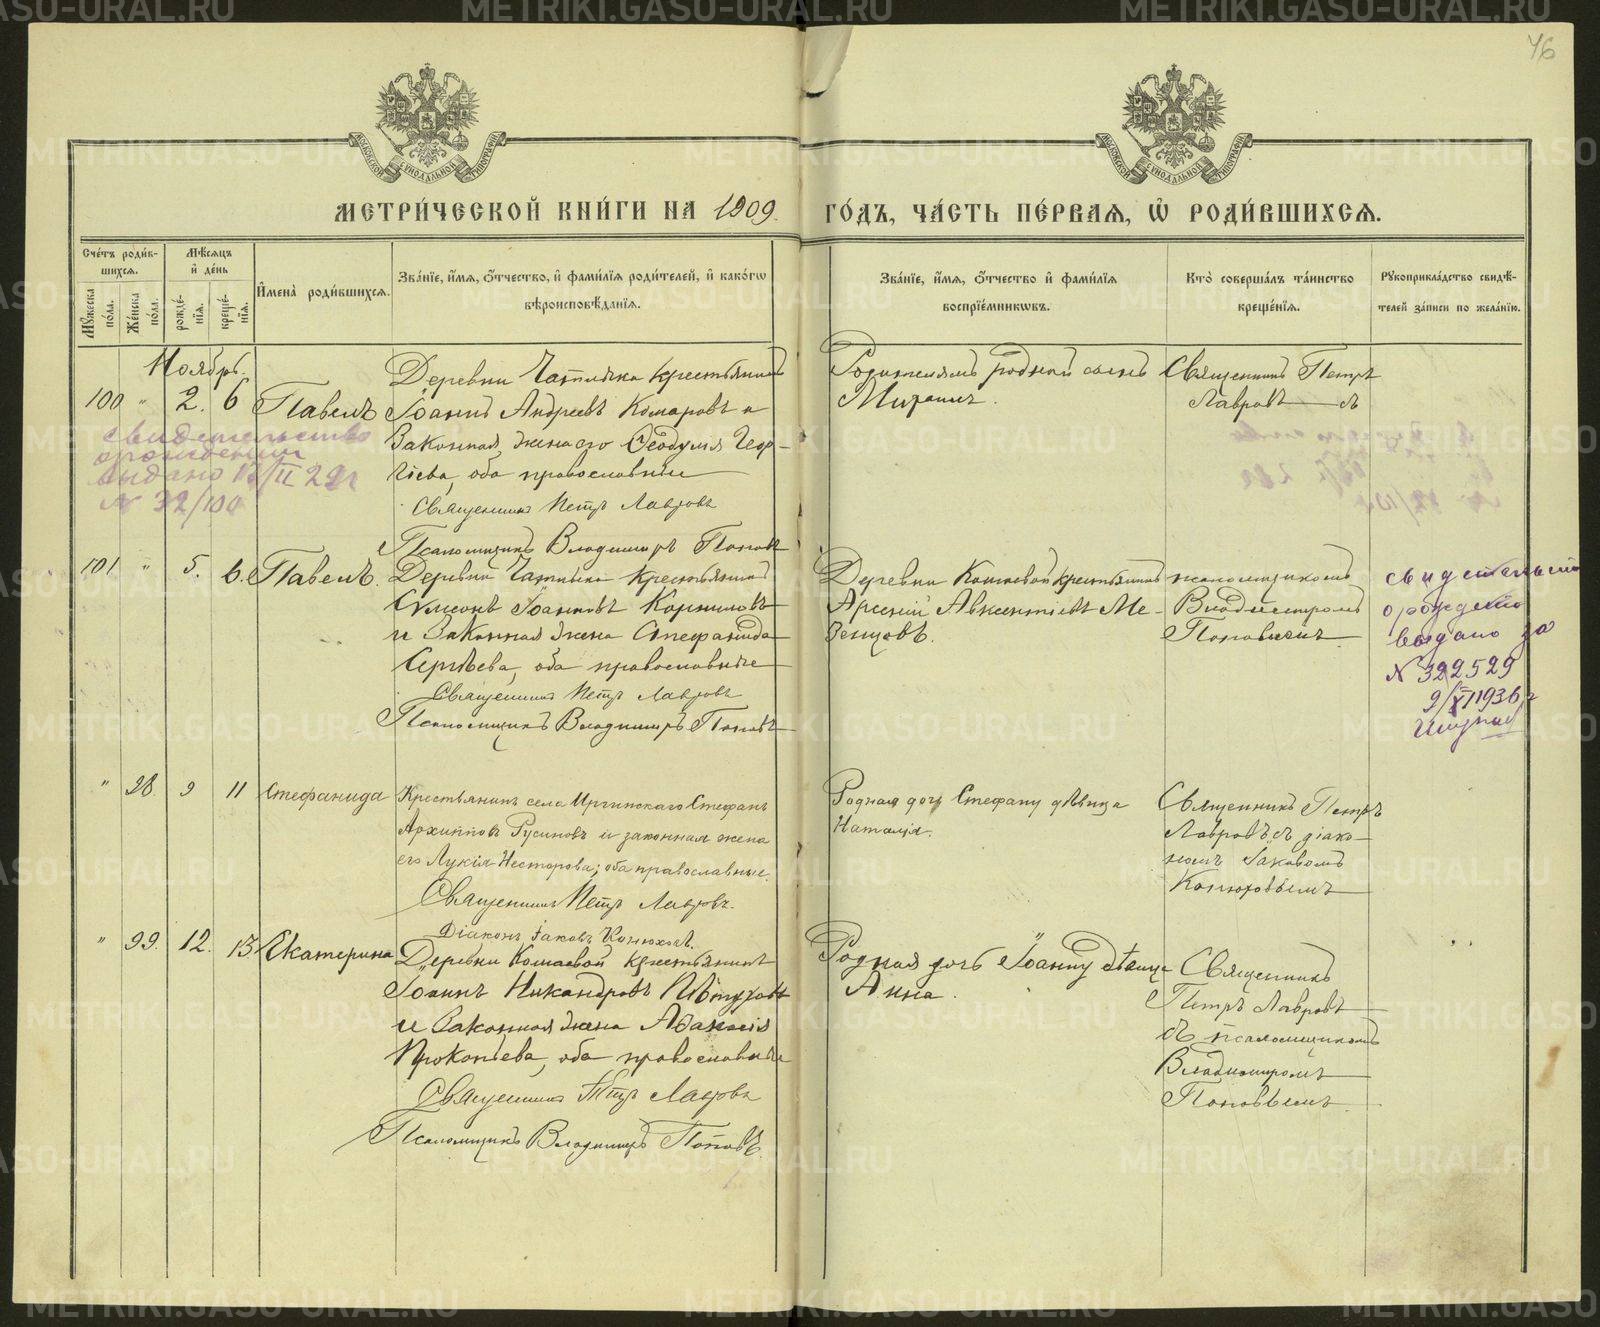 46
МОСКОВСКОЙ СѴНОДАЛЬНОЙ ТИПОГРАФІИ
МОСКОВСКОЙ СѴНОДАЛЬНОЙ ТИПОГРАФІИ
МЕТРИ́ЧЕСКОЙ КНИ́ГИ НА 1909 ГО́ДЪ, ЧА́СТЬ ПЕ́РВАѦ, Ѡ҆ РОДИ́ВШИХСѦ.
Сче́тъ роди́в-
шихсѧ.
Мꙋ́жеска по́ла.
Же́нска по́ла.
Мѣ́сѧцъ
и҆ де́нь
рожде́-
нїѧ.
креще́-
нїѧ.
И҆мена̀ роди́вшихсѧ.
Зва́нїе, и҆́мѧ, ѻ҆́тчество, и҆ фами́лїѧ роди́телей, и҆ како́гѡ
вѣроисповѣ́данїѧ.
Зва́нїе, и҆́мѧ, ѻ҆́тчество и҆ фами́лїѧ
воспрїе́мникѡвъ.
Кто̀ соверша́лъ та́инство
креще́нїѧ.
Рꙋкоприкла́дство свидѣ́-
телей за́писи по жела́нїю.
Ноябрь.
100 " 2. 6 Павелъ
Деревни Чатлыка крестьянинъ
Іоаннъ Андреевъ Комаровъ и
Законная жена его Ѳеодулия Геор-
гіева, оба православные
Священникъ Петръ Лавровъ
Псаломщикъ Владимиръ Поповъ
Родителямъ родной сынъ
Михаилъ.
Священникъ Петръ
Лавровъ съ
свидетельство
о рождении
выдано 13/II 29г
№ 32/100
101 " 5. 6. Павелъ.
Деревни Чатлыка крестьянинъ
Сумеонъ Іоанновъ Корниловъ
и Законная жена Стефанида
Сергѣева, оба православные
Священникъ Петръ Лавровъ
Псаломщикъ Владимиръ Поповъ
Деревни Кошаевой крестьянинъ
Арсеній Авксентіевъ Ме-
зенцовъ.
псаломщикомъ
Владимиромъ
Поповымъ
свидетельство
о рождении
выдано за
№ 322529
9/XI 1936 г
" 98. 9 11 Стефанида
Крестьянинъ села Иргинскаго Стефанъ
Архипповъ Русиновъ и законная жена
его Лукія Несторова; оба православные.
Священникъ Петръ Лавровъ.
Діаконъ Іаковъ Конюховъ.
Родная дочь Стефану дѣвица
Наталія.
Священникъ Петръ
Лавровъ съ діако-
номъ Іаковомъ
Конюховымъ
" 99. 12. 13. Екатерина
Деревни Кошаевой крестьянинъ
Іоаннъ Никандровъ Пѣтуховъ
и Законная жена Аѳанасія
Прокопьева, оба православные
Священникъ Петръ Лавровъ
Псаломщикъ Владимиръ Поповъ.
Родная дочь Іоанну дѣвица
Анна.
Священникъ
Петръ Лавровъ
съ псаломщикомъ
Владимиромъ
Поповымъ.
METRIKI.GASO-URAL.RU